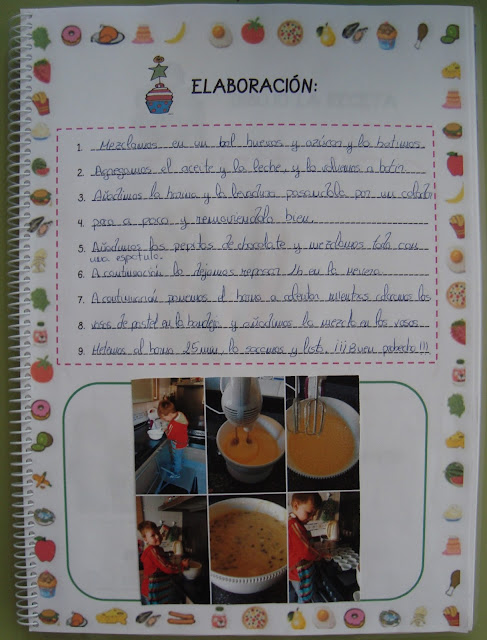 ELABORACIÓN:
1. Mezclamos en un bol huevos y azúcar y lo batimos.
2. Agregamos el aceite y la leche y lo volvemos a batir
3. Añadimos la harina y la levadura pasandola por un colador
4. poco a poco y removiendola bien.
5. Añadimos las pepitas de chocolate y mezclamos todo con
una espátula.
6. A continuación lo dejamos reposar 1h en la nevera
7. A continuación ponemos el horno a calentar mientras colocamos los
8. vasos de pastel en la bandeja y añadimos la mezcla en los vasos.
9. Metemos al horno 25 min. lo sacamos y listo. ¡¡¡Buen provecho!!!